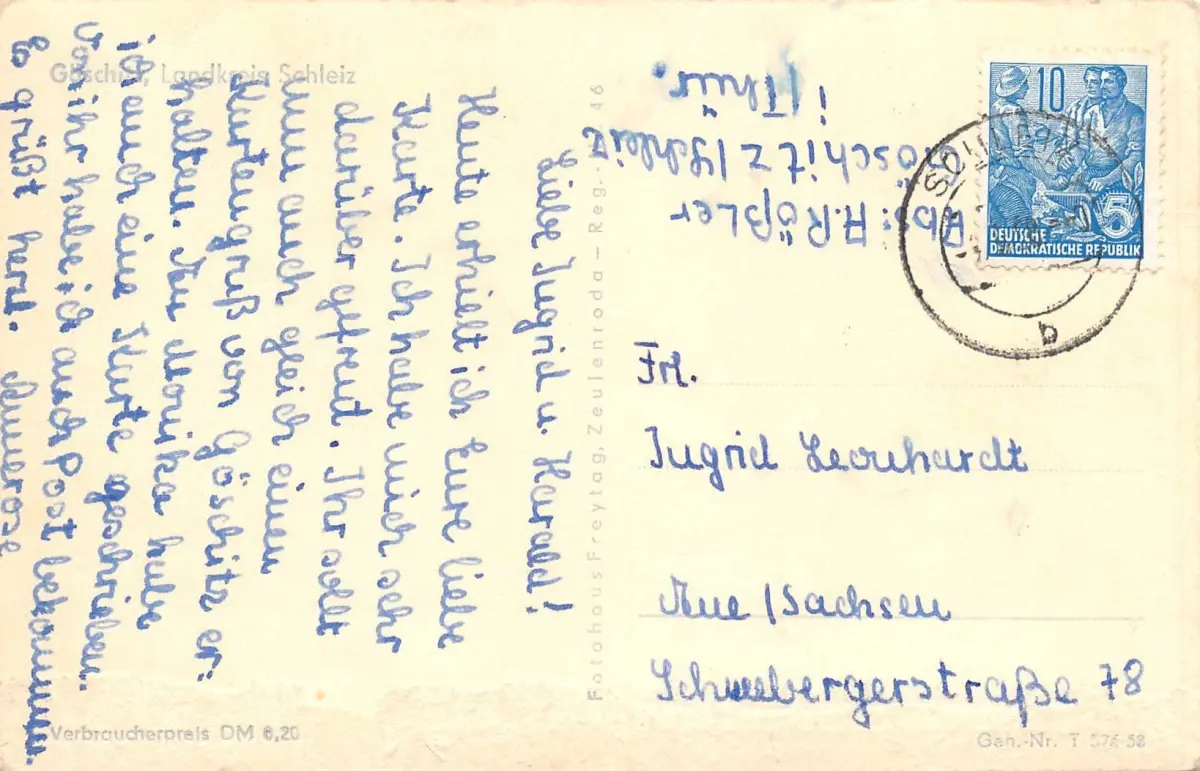 Göschitz, Landkreis Schleiz
Liebe Ingrid u. Harald!
Heute erhielt ich Eure liebe
Karte. Ich habe mich sehr
darüber gefreut. Ihr sollt
nun auch gleich einen
Kartengruß von Göschitz er=
halten. An Monika habe
ich auch eine Karte geschrieben.
Von ihr habe ich auch Post bekommen.
Es grüßt herzl. Annerose
Verbraucherpreis DM 0,20
Fotohaus Freytag, Zeulenroda – Reg.- 46
Abs: A. Rößler
Göschitz / Schleiz
i/Thür.
10
5
DEUTSCHE
DEMOKRATISCHE REPUBLIK
SCHLEIZ
b
Frl.
Ingrid Leonhardt
Aue / Sachsen
Schneebergerstraße 78
Gen.-Nr. T 576-58